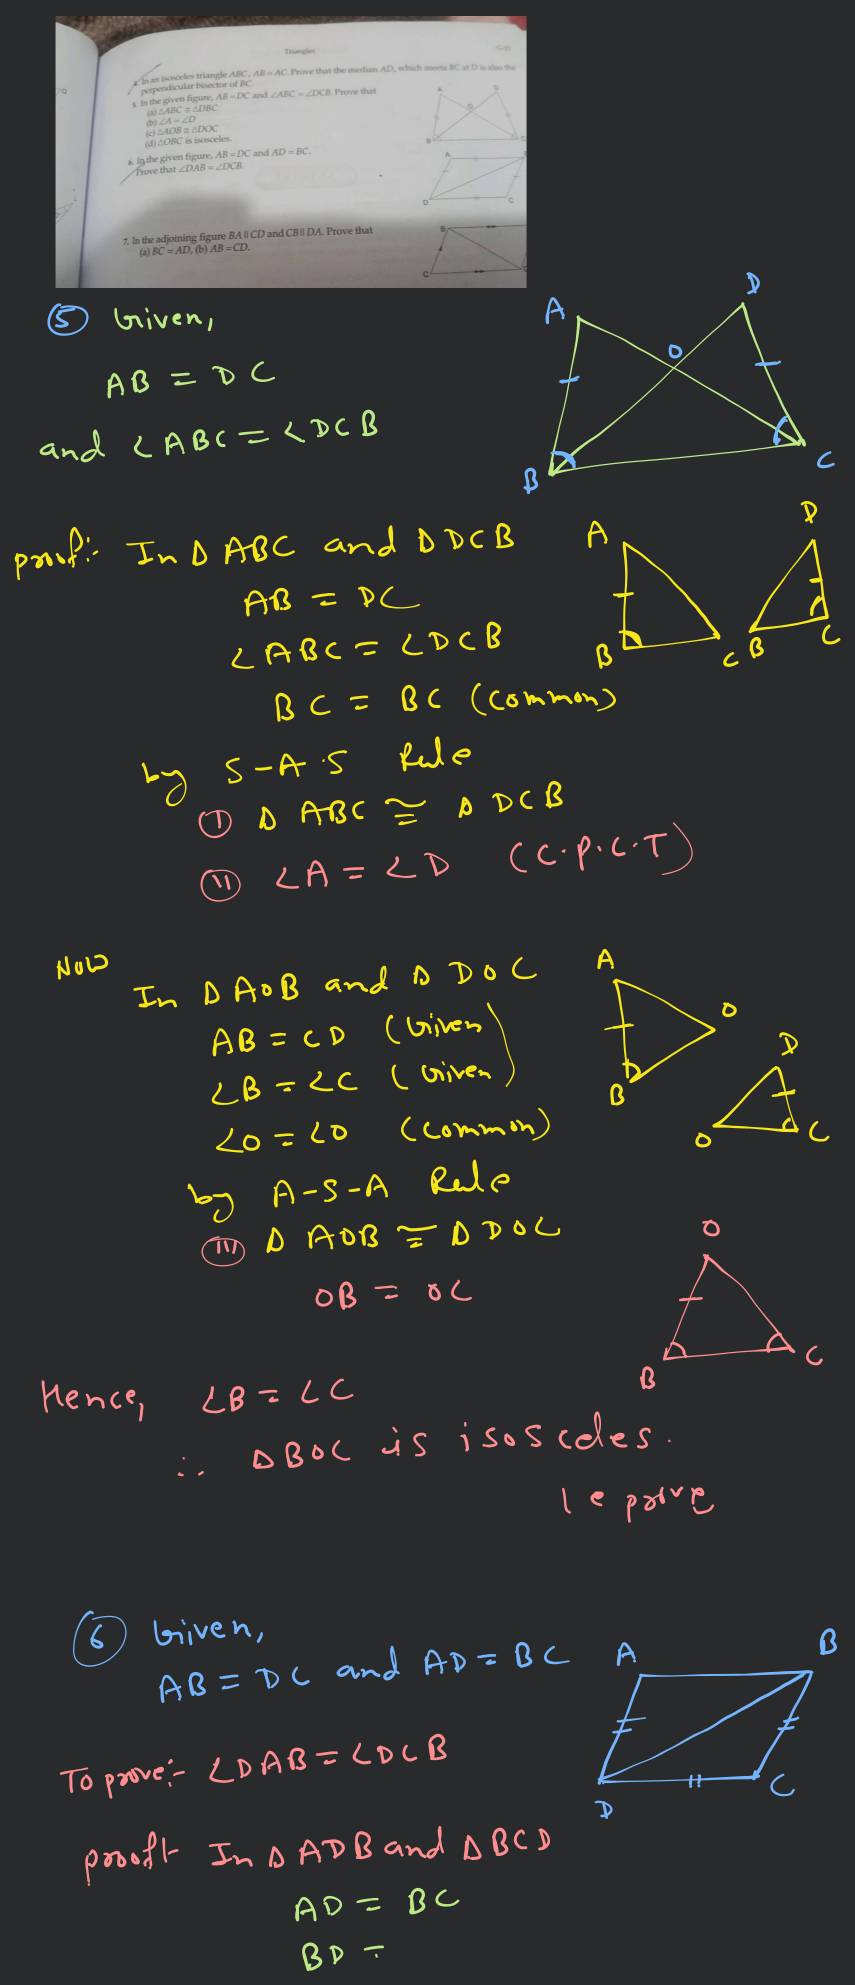 Triangles
4. In an isosceles triangle ABC, AB = AC. Prove that the median AD, which meets BC at D is also the
perpendicular bisector of BC.
5. In the given figure, AB = DC and ∠ABC = ∠DCB. Prove that
(a) △ABC ≅ △DBC
(b) ∠A = ∠D
(c) △AOB ≅ △DOC
(d) △OBC is isosceles.
6. In the given figure, AB = DC and AD = BC.
Prove that ∠DAB = ∠DCB.
7. In the adjoining figure BA || CD and CB || DA. Prove that
(a) BC = AD, (b) AB = CD.
5 Given,
AB = DC
and ∠ABC = ∠DCB
A D O B C
proof:- In △ ABC and △ DCB
AB = DC
∠ABC = ∠DCB
BC = BC (common)
by S-A-S Rule
I △ ABC ≅ △ DCB
II ∠A = ∠D (C.P.C.T)
A B C D B C
Now
In △ AOB and △ DOC
AB = CD (Given)
∠B = ∠C (Given)
∠O = ∠O (common)
by A-S-A Rule
III △ AOB ≅ △ DOC
OB = OC
A O B D O C
O B C
Hence, ∠B = ∠C
∴ △BOC is isosceles.
prove
6 Given,
AB = DC and AD = BC
A B D C
To prove:- ∠DAB = ∠DCB
proof:- In △ ADB and △ BCD
AD = BC
BD =